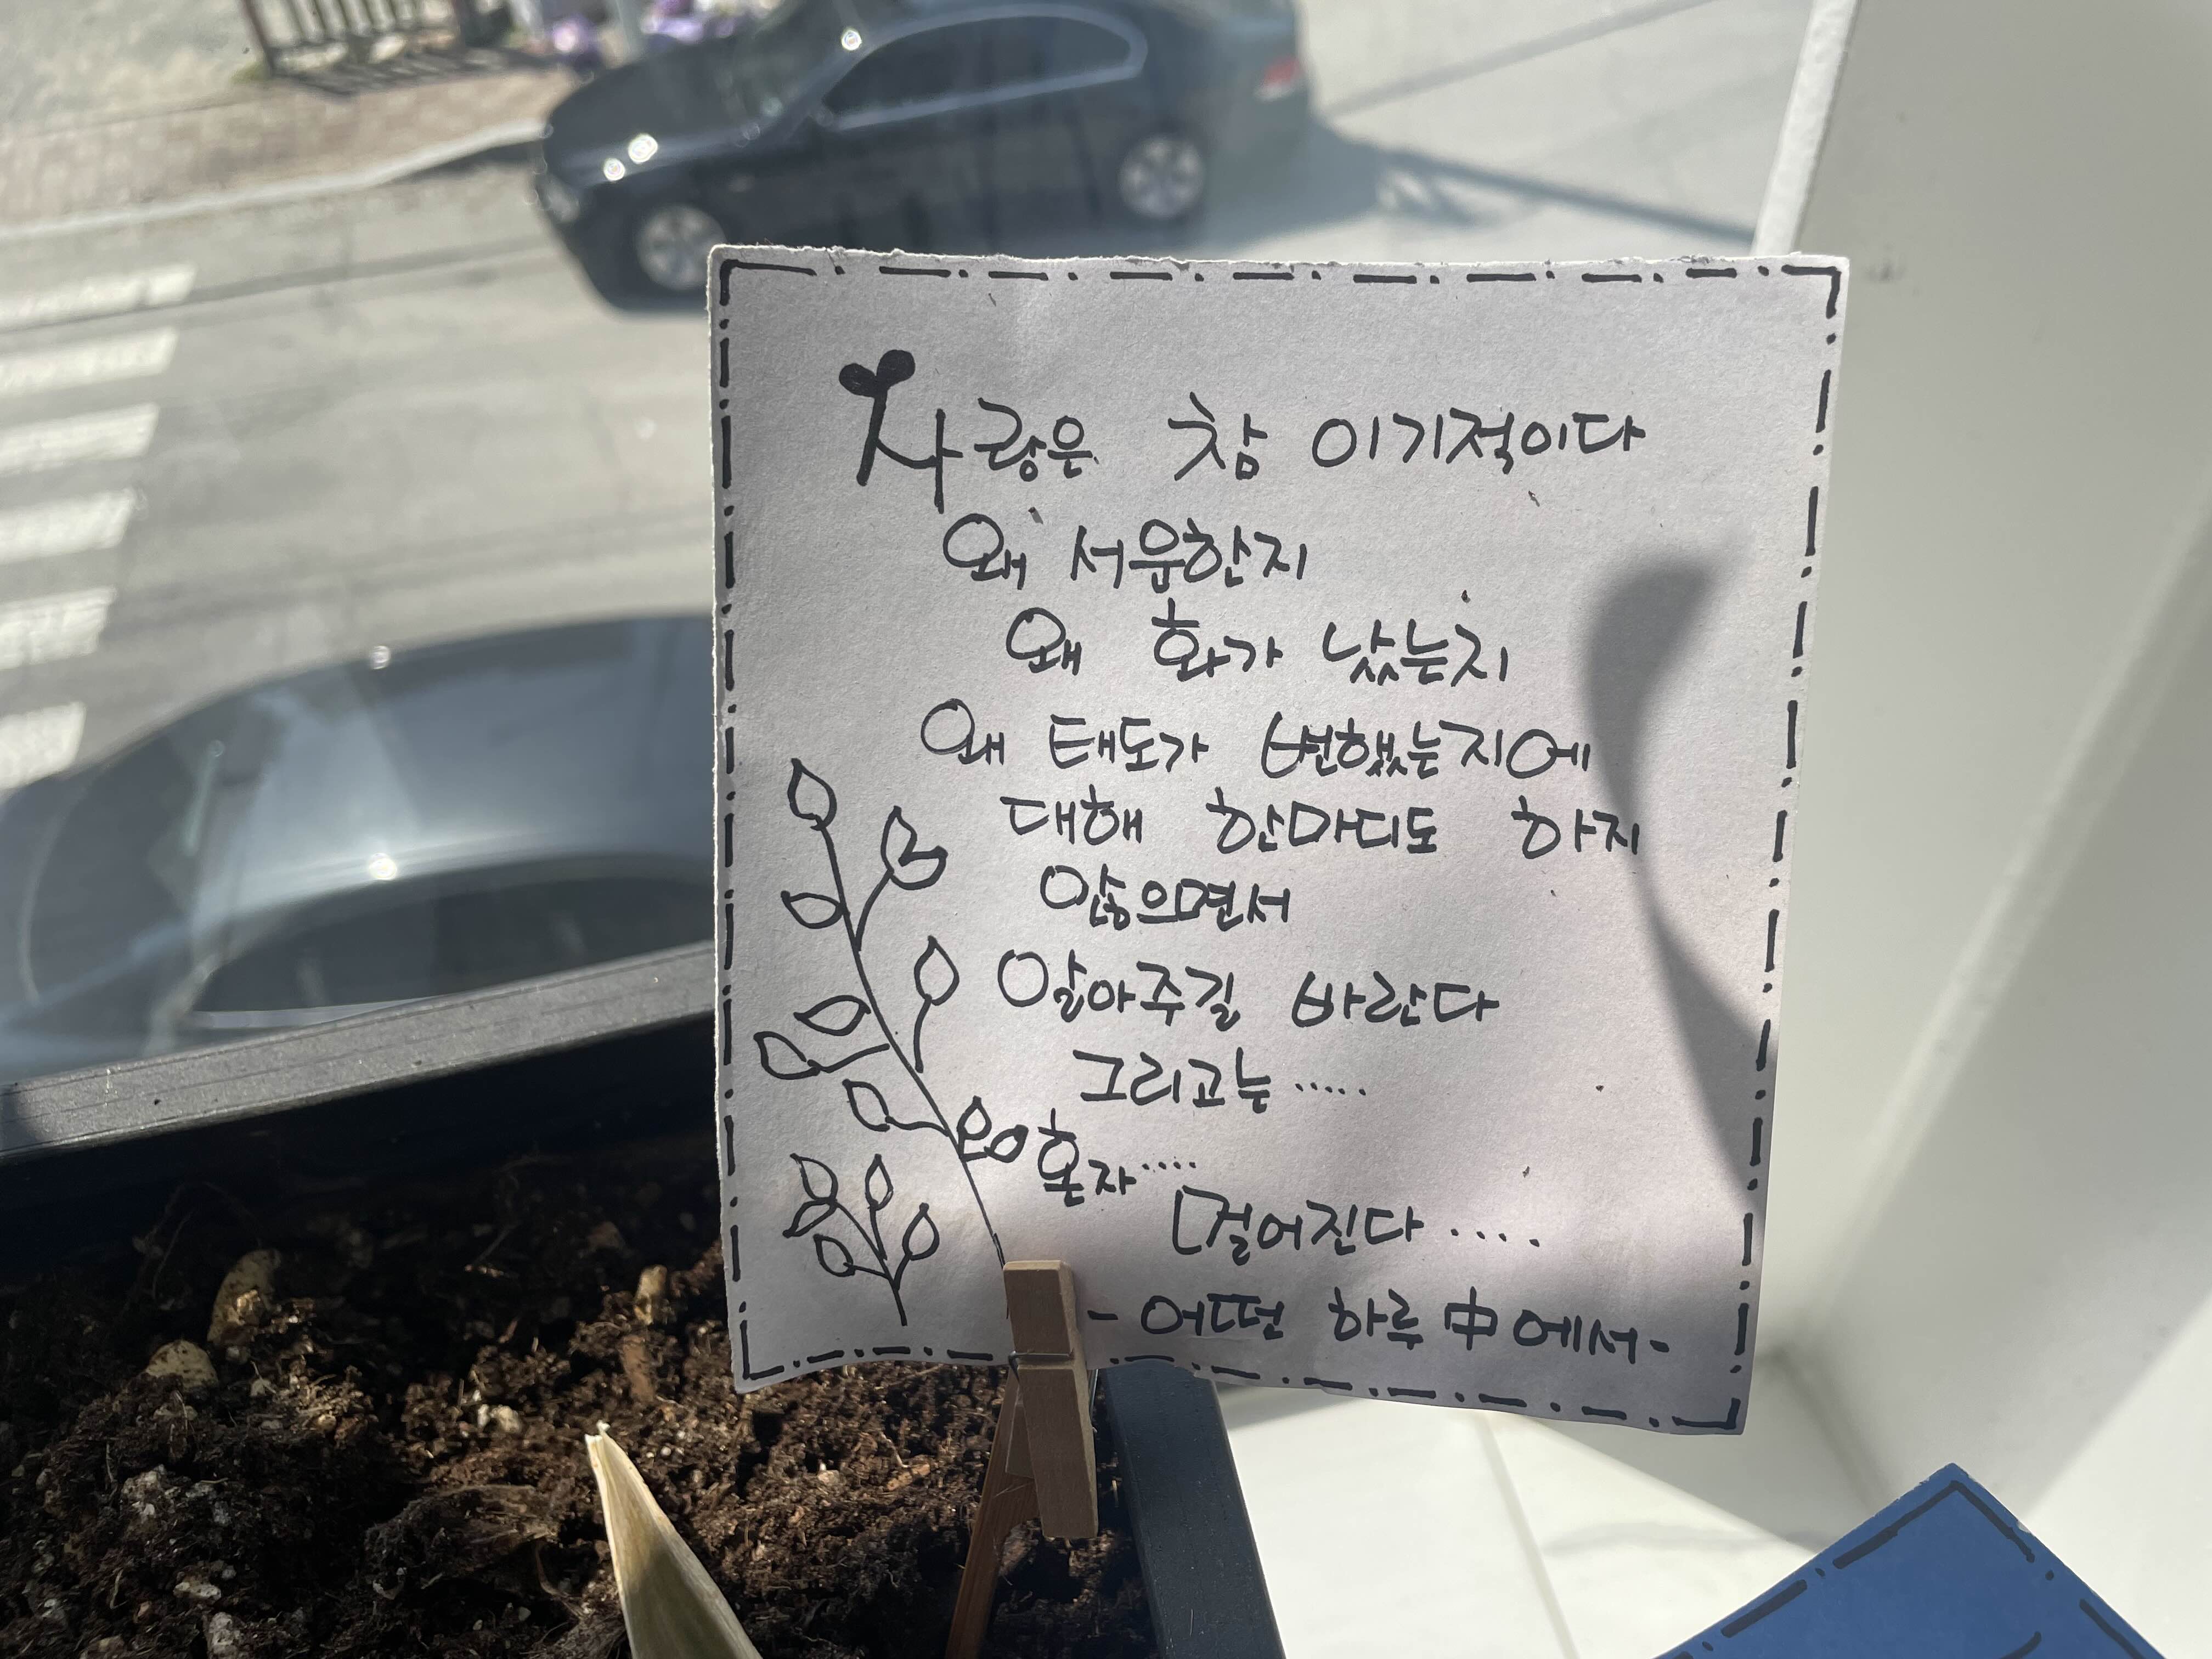 사랑은 참 이기적이다
왜 서운한지
왜 화가 났는지
왜 태도가 변했는지에
대해 한마디도 하지
않으면서
알아주길 바란다
그리고는.....
혼자....
멀어진다....
-어떤 하루 中에서-